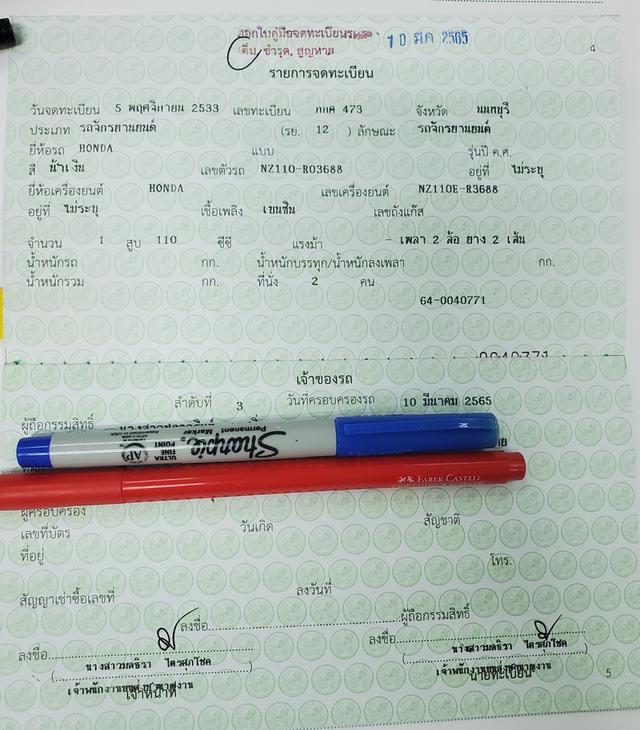 ออกใบคู่มือจดทะเบียนรถ
10 มีค 2565
เต็ม, ชำรุด, สูญหาย
4
รายการจดทะเบียน
วันจดทะเบียน 5 พฤศจิกายน 2533 เลขทะเบียน 473 จังหวัด นนทบุรี
ประเภท รถจักรยานยนต์ (รย. 12 ) ลักษณะ รถจักรยานยนต์
ยี่ห้อรถ HONDA แบบ รุ่นปี ค.ศ.
สี น้ำเงิน เลขตัวรถ NZ110-R03688 อยู่ที่ ไม่ระบุ
ยี่ห้อเครื่องยนต์ HONDA เลขเครื่องยนต์ NZ110E-R3688
อยู่ที่ ไม่ระบุ เชื้อเพลิง เบนซิน เลขถังแก๊ส
จำนวน 1 สูบ 110 ซีซี แรงม้า - เพลา 2 ล้อ ยาง 2 เส้น
น้ำหนักรถ กก. น้ำหนักบรรทุก/น้ำหนักลงเพลา กก.
น้ำหนักรวม กก. ที่นั่ง 2 คน
64-0040771
0040771
เจ้าของรถ
ลำดับที่ 3 วันที่ครอบครองรถ 10 มีนาคม 2565
ผู้ถือกรรมสิทธิ์
Sharpie
Permanent Marker
ULTRA FINE POINT
AP
FABER CASTELL
ผู้ครอบครอง
เลขที่บัตร วันเกิด สัญชาติ
ที่อยู่
โทร.
สัญญาเช่าซื้อเลขที่ ลงวันที่
ลงชื่อ ผู้ถือกรรมสิทธิ์
ลงชื่อ ลงชื่อ
เจ้าหน้าที่ นายทะเบียน
5